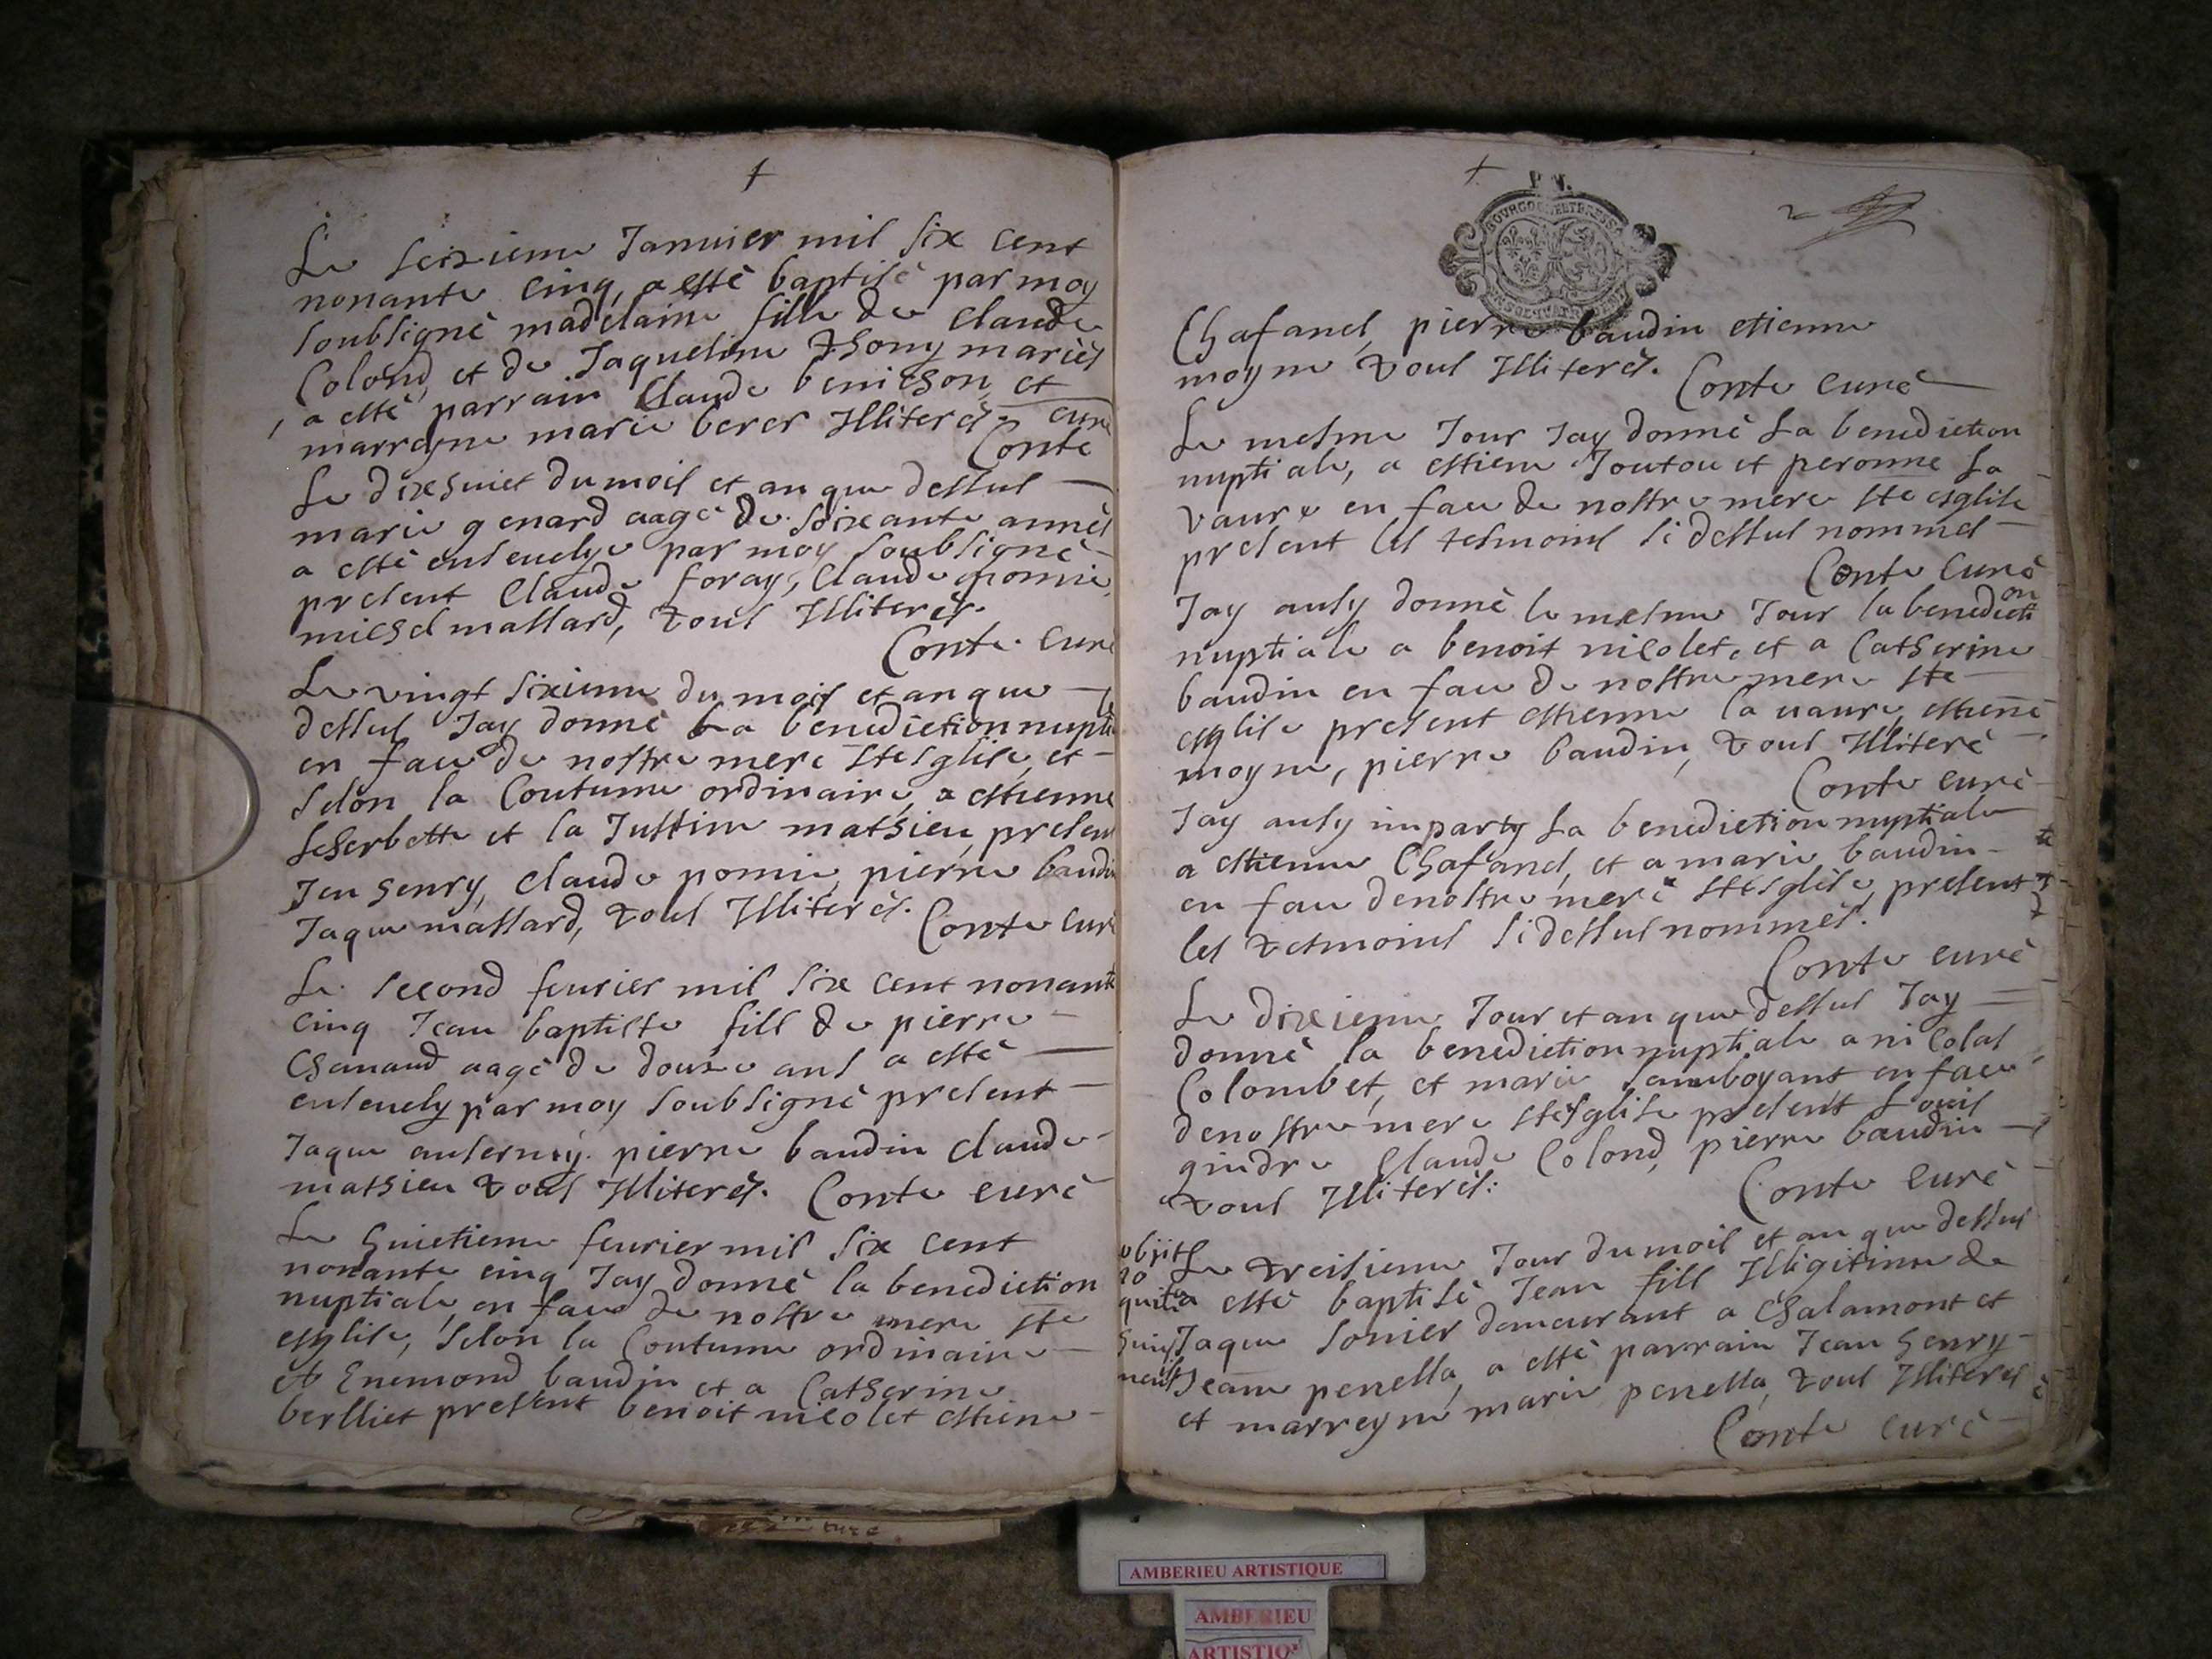 Le seizieme Januier mil six cent
nonante cinq, a esté baptisé par moy
soubsigné madelaine fille de claude
Colond, et de Jaqueline Thony mariés
a esté parrain Claude benichon, et
marreyne marie berer Illiterés. curé
Conte
Le dixhuiet du mois et an que dessus
marie genard aagé de soixante annés
a esté enseuelye par moy soubsigné
present Claude foray, Claude pomie,
michel massard, tous Illiterés.
Conte curé
Le vingt sixieme du mois et an que
dessus Jay donné La benediction nupti
en face de nostre mere stesglise, et
selon la Coutume ordinaire, a estienne
Leherbette et la Justine mathieu, present
Jen henry, claude pomie, pierre baudin
Jaque massard, tous Illiterés. Conte curé
Le second feurier mil six cent nonante
cinq Jean baptiste fils de pierre
Chanaud aagé de douze ans a esté
enseuely par moy soubsigné present
Jaque pierre baudin claude
mathieu tous Illiterés. Conte curé
Le huietieme feurier mil six cent
nonante cinq Jay donné la benediction
nuptiale, en face de nostre mere ste
esglise, selon la Coutume ordinaire
Enemond baudin et a Catherine
berlliet present benoit nicolet estiene
P. V.
BOURGOGNE ET BRESSE
2
Chafanel, pierre baudin etienne
moyne tous Illiterés.
Conte curé
Le mesme Jour Jay donné La benediction
nuptiale, a estiene Joutou et peronne La
vaure en face de nostre mere ste esglise
present les tesmoins si dessus nommés
Conte Curé
Jay ausy donné le mesme Jour la benedicti
on
nuptiale a benoit nicolet, et a Catherine
baudin en face de nostre mere ste
esglise present estienne la uaure, estiene
moyne, pierre baudin, tous Illiteré
Conte curé
Jay ausy imparty La benediction nuptiale
a estienne Chafanel, et a marie baudin
en face denostre mere stesglise, present
les tetmoins si dessus nommés.
Conte curé
Le dixieme Jour et an que dessus Jay
donné la benediction nuptiale a nicolas
Colombet, et marie en face
denostre mere stesglise present Louis
gindre Claude Colond, pierre baudin
tous Illiterés.
Conte curé
objit Le treisieme Jour du mois et an que dessus
a esté baptisé Jean fils Illigitime de
Jaque sonier demeurant a Chalamont et
Jeane penella, a esté parrain Jean henry
et marreyne marie penella, tous Illiterés
Conte curé
AMBERIEU ARTISTIQUE
AMBERIEU
ARTISTIQ